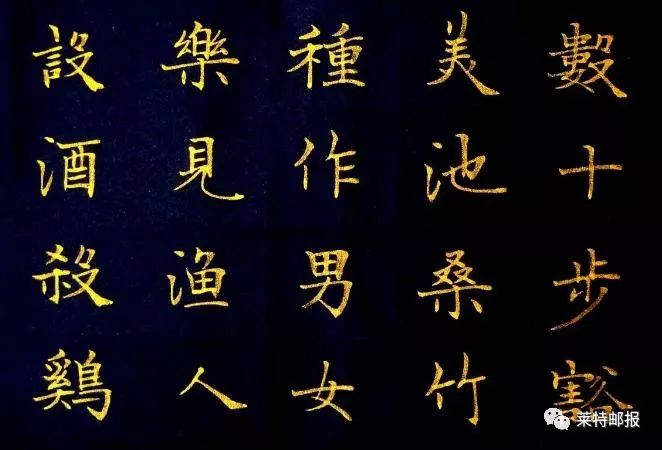 數十步豁
美池桑竹
種作男女
樂見渔人
設酒殺鷄
莱特邮报